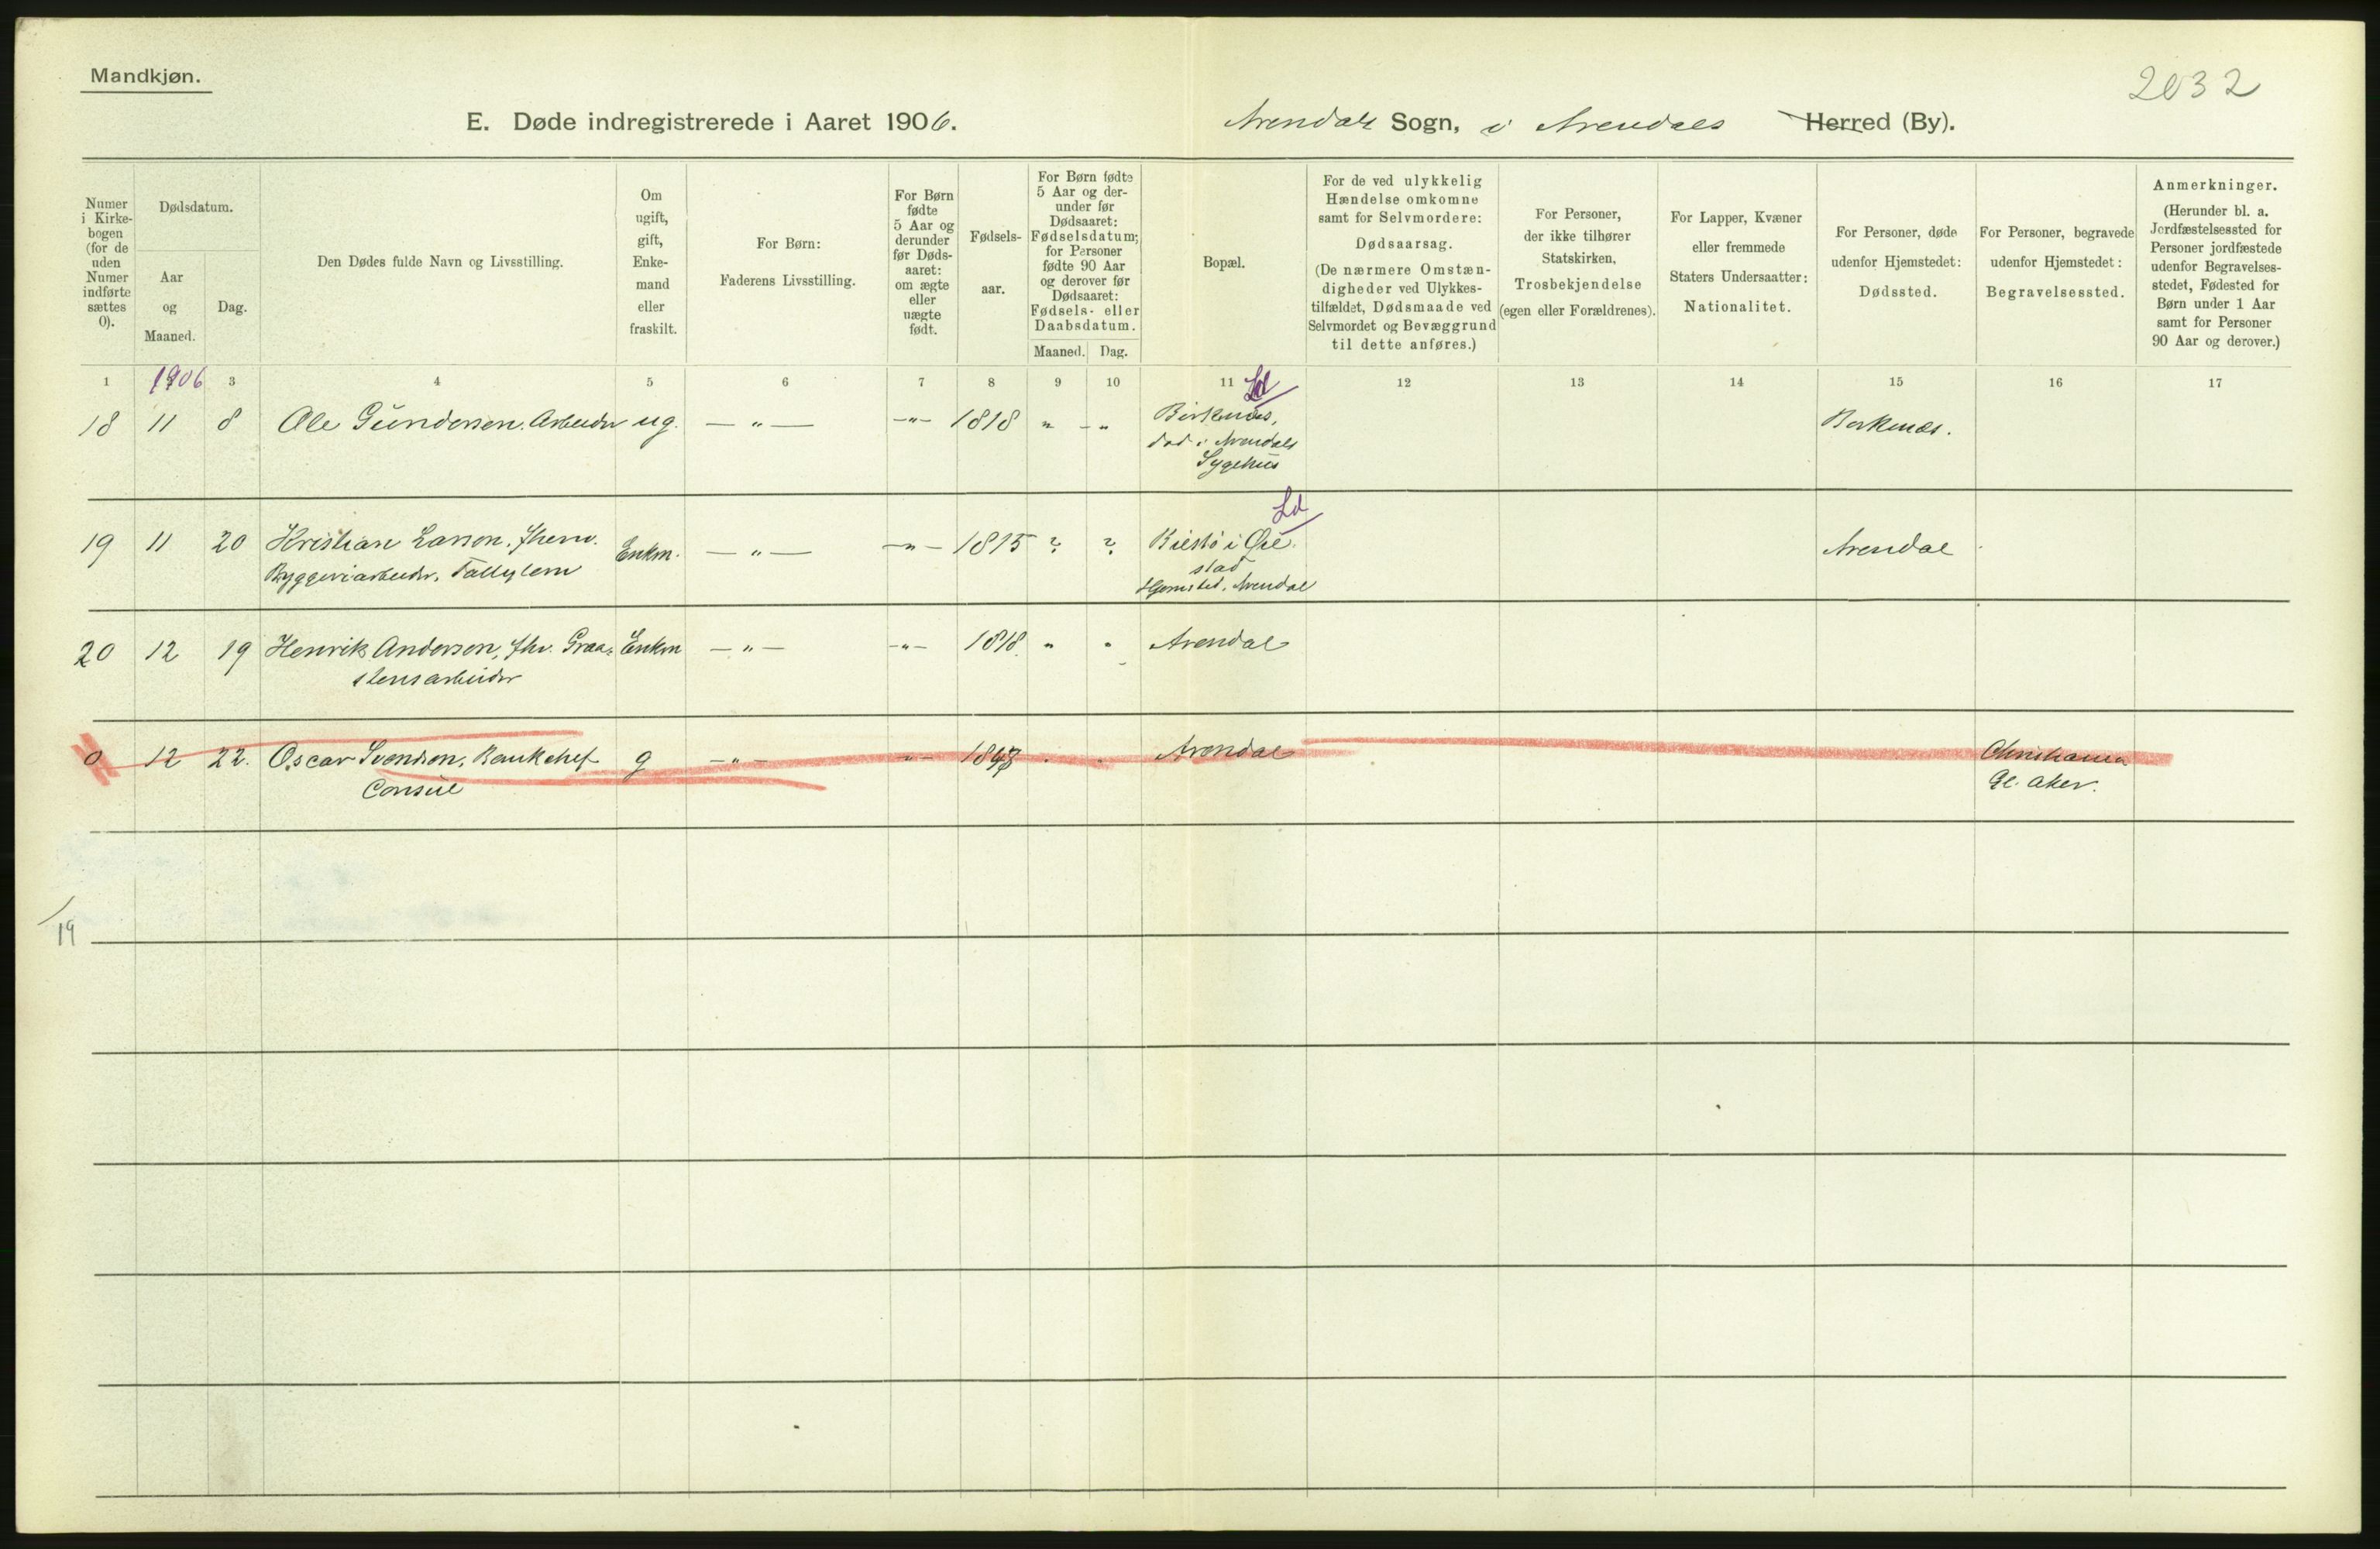 Mandkjøn.
2032
E. Døde indregistrerede i Aaret 1906.
Arendals Sogn, i Arendals Herred (By).
Numer i Kirkebogen (for de uden Numer indførte sættes 0).
Dødsdatum.
Aar og Maaned.
Dag.
Den Dødes fulde Navn og Livsstilling.
Om ugift, gift, Enkemand eller fraskilt.
For Børn:
Faderens Livsstilling.
For Børn fødte 5 Aar og derunder før Dødsaaret: om ægte eller uægte født.
Fødselsaar.
For Børn fødte 5 Aar og derunder før Dødsaaret: Fødselsdatum; for Personer fødte 90 Aar og derover før Dødsaaret: Fødsels- eller Daabsdatum.
Maaned. Dag.
Bopæl.
For de ved ulykkelig Hændelse omkomne samt for Selvmordere:
Dødsaarsag.
(De nærmere Omstændigheder ved Ulykkestilfældet, Dødsmaade ved Selvmordet og Bevæggrund til dette anføres.)
For Personer, der ikke tilhører Statskirken,
Trosbekjendelse
(egen eller Forældrenes).
For Lapper, Kvæner eller fremmede Staters Undersaatter:
Nationalitet.
For Personer, døde udenfor Hjemstedet:
Dødssted.
For Personer, begravede udenfor Hjemstedet:
Begravelsessted.
Anmerkninger.
(Herunder bl. a. Jordfæstelsessted for Personer jordfæstede udenfor Begravelsesstedet, Fødested for Børn under 1 Aar samt for Personer 90 Aar og derover.)
1 1906 3 4 5 6 7 8 9 10 11 12 13 14 15 16 17
Ld
18 11 8 Ole Gundersen. Arbeider ug. — " — — " — 1818 " - " Birkenæs,
død i Arendals
Sygehus
Birkenæs.
Ld
19 11 20 Kristian Larsen. fhenv. Enkm. — " — — " — 1815 ? ?
Byggeriarbeider,
i Øie
stad
Hjemsted. Arendal
Arendal
20 12 19 Henrik Andersen, fhv. Graa= Enkm — " — — " — 1818 " " Arendal
stensarbeider
0 12 22. Oscar Svendsen, Bankchef g — " — " — Arendal
Consul
Christiania
Gl. Aker.
19